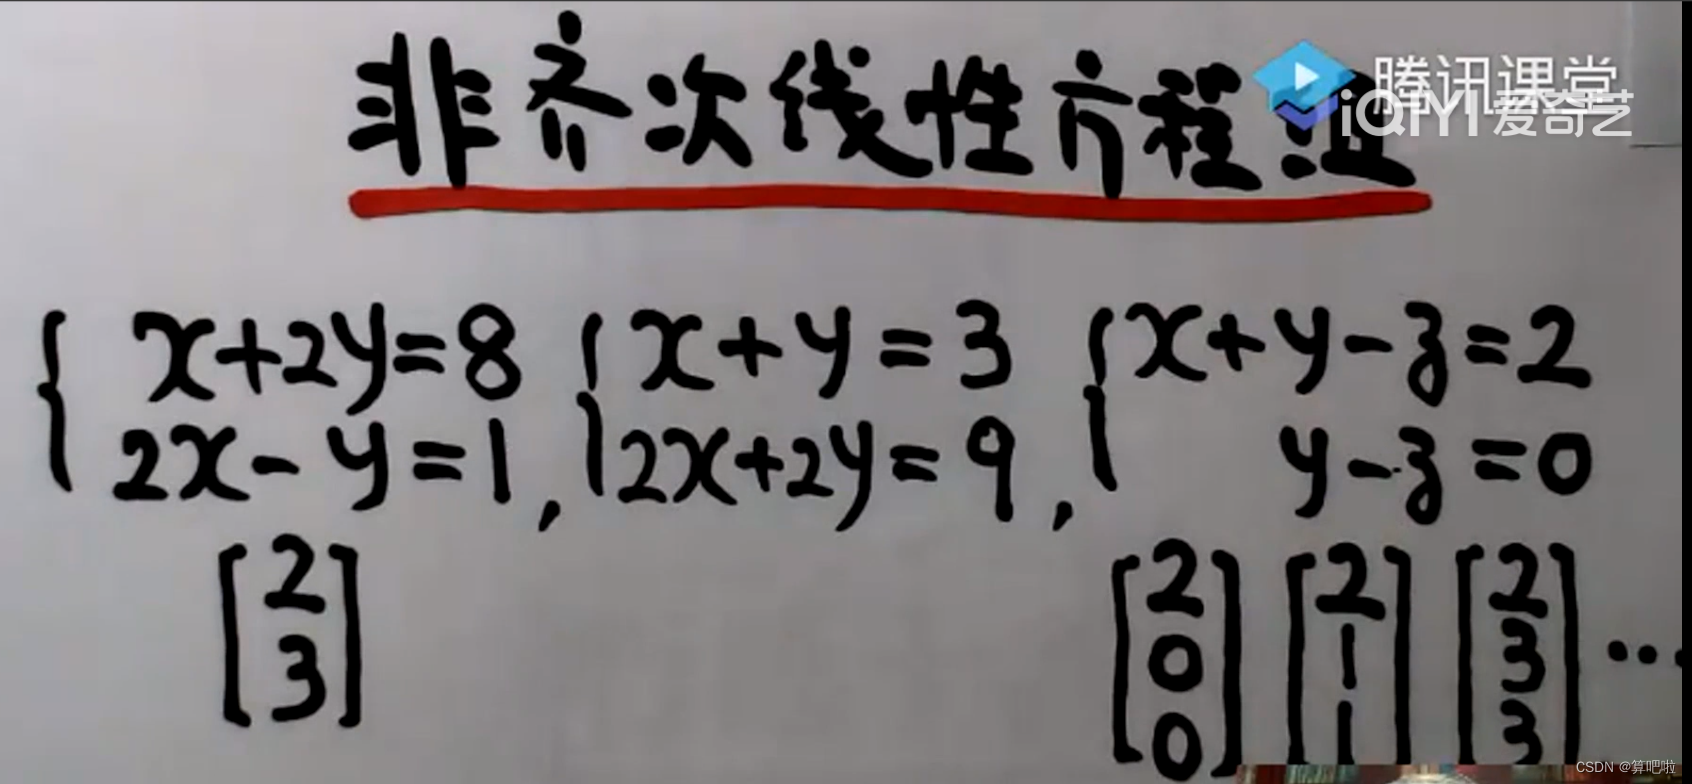 非齐次线性方程组
腾讯课堂
iQIYI 爱奇艺
{ x+2y=8 , { x+y=3 , { x+y-z=2
2x-y=1 2x+2y=9 y-z=0
[2 3] [2 0 0] [2 1 1] [2 3 3] ...
CSDN @算吧啦